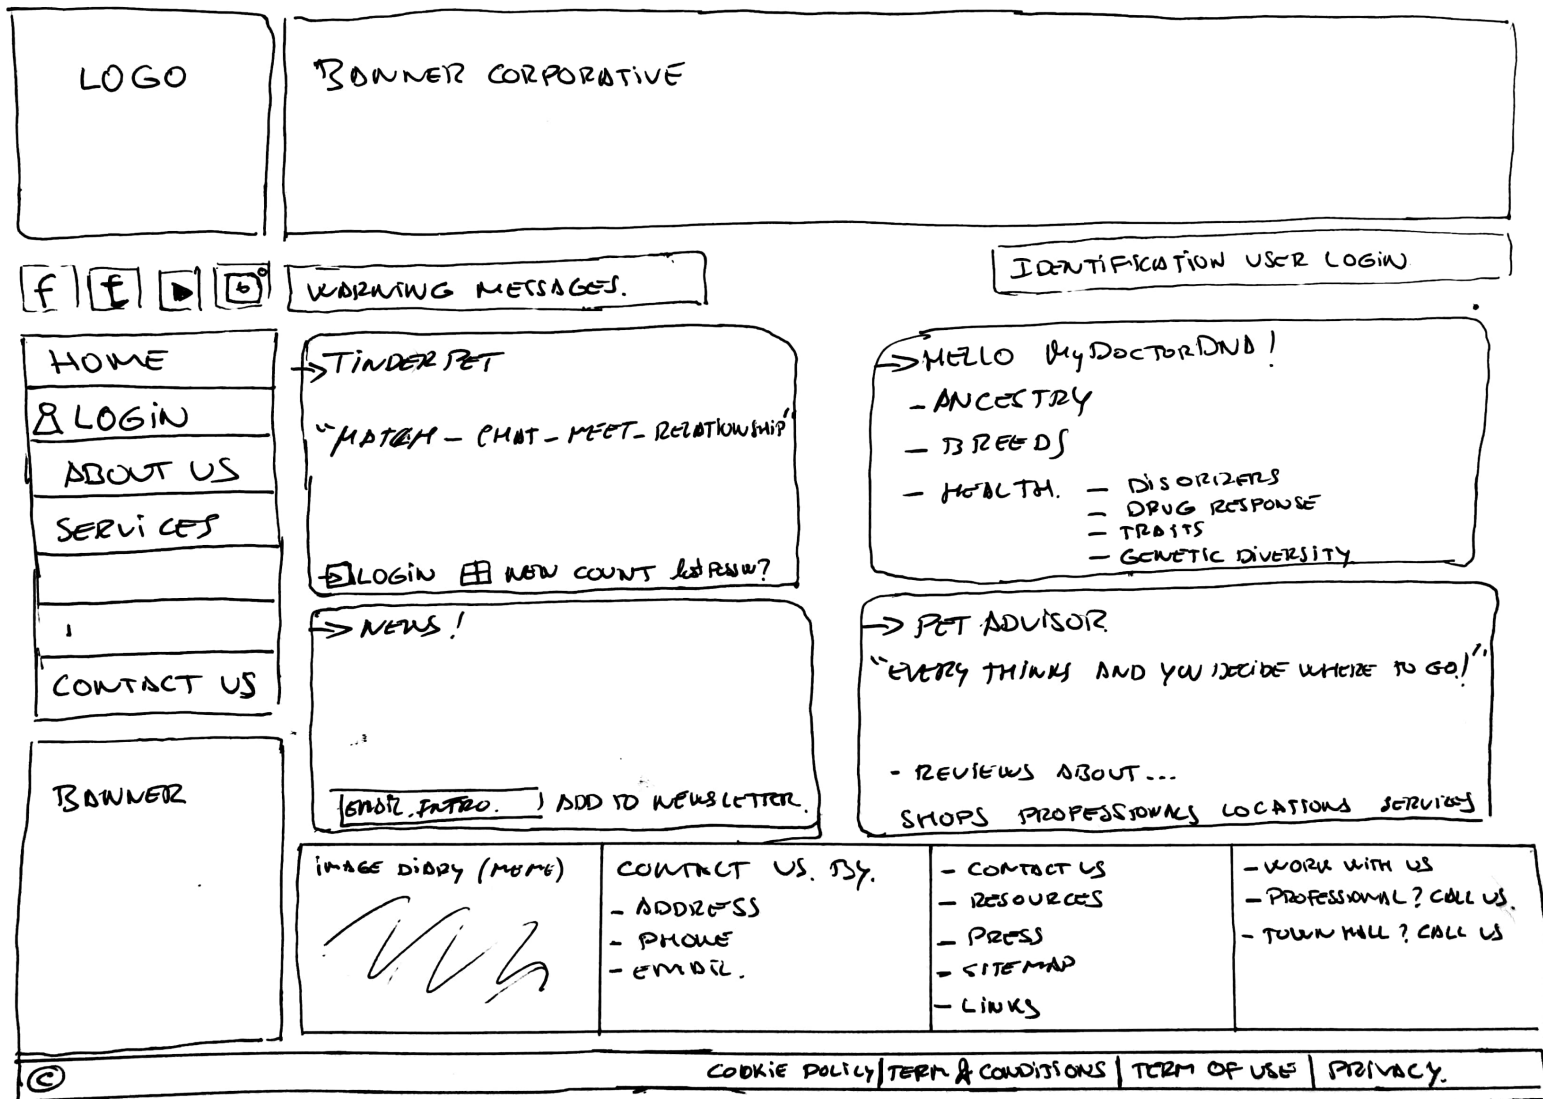 LOGO
BANNER CORPORATIVE
f t
WARNING MESSAGES.
IDENTIFICATION USER LOGIN
HOME
LOGIN
ABOUT US
SERVICES
CONTACT US
BANNER
TINDER PET
"MATCH - CHAT - MEET - RELATIONSHIP"
LOGIN NEW COUNT lost PASSW?
HELLO MyDOCTORDNA!
- ANCESTRY
- BREEDS
- HEALTH. - DISORDERS
- DRUG RESPONSE
- TRAITS
- GENETIC DIVERSITY
NEWS!
EMAIL INTRO. ADD TO NEWSLETTER.
PET ADVISOR
"EVERY THINKS AND YOU DECIDE WHERE TO GO!"
- REVIEWS ABOUT...
SHOPS PROFESSIONALS LOCATIONS SERVICES
IMAGE DIARY (MEME)
CONTACT US. BY.
- ADDRESS
- PHONE
- EMAIL.
- CONTACT US
- RESOURCES
- PRESS
- SITEMAP
- LINKS
- WORK WITH US
- PROFESSIONAL? CALL US.
- TOWN HALL? CALL US
© COOKIE POLICY | TERM & CONDITIONS | TERM OF USE | PRIVACY.